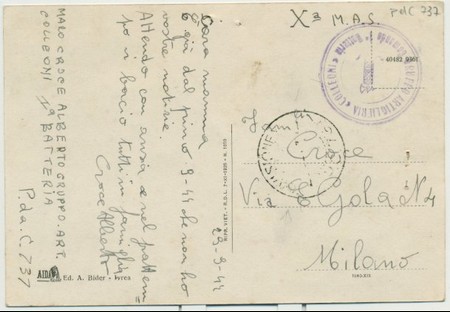 Xª M.A.S.
pdC 737
GRUPPO ARTIGLIERIA "COLLEONI"
40482
23-9-44
Cara mamma
è già dal primo 9-44 che non ho
vostre notizie.
Attendo con ansia e nel frattem=
po vi bacio tutti in famiglia
Croce Alberto
MARÒ CROCE ALBERTO GRUPPO. ART.
COLLEONI Iª BATTERIA
P.da.C. 737
AIDA
Ed. A. Bider - Ivrea
Croce
Via Gola N4
Milano